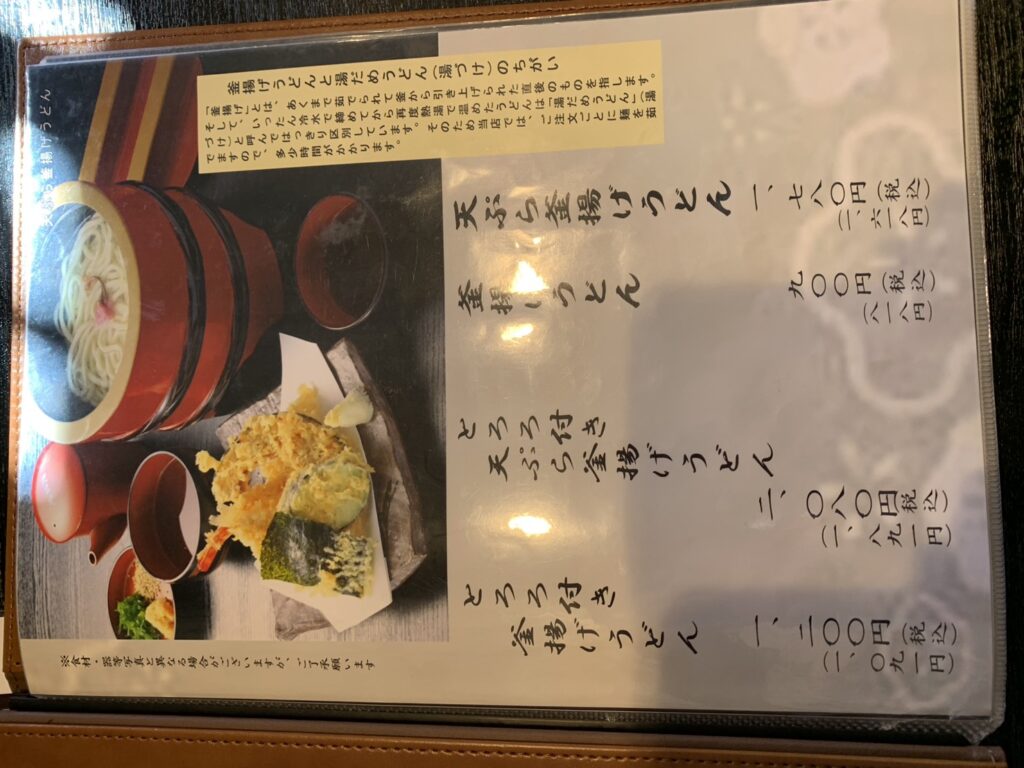 釜揚げうどんと湯だめうどん(湯づけ)のちがい
「釜揚げ」とは、あくまで茹でられて釜から引き上げられた直後のものを指します。
そして、いったん冷水で締めてから再度熱湯で温めたうどんは「湯だめうどん」(湯
づけ)と呼んではっきり区別しています。そのため当店では、ご注文ごとに麺を茹
でますので、多少時間がかかります。
天ぷら釜揚げうどん
天ぷら釜揚げうどん 一、七八〇円(税込)
(一、六一八円)
釜揚げうどん 九〇〇円(税込)
(八一八円)
とろろ付き
天ぷら釜揚げうどん
二、〇八〇円(税込)
(一、八九一円)
とろろ付き
釜揚げうどん 一、二〇〇円(税込)
(一、〇九一円)
※食材・器等写真と異なる場合がございますが、ご了承願います